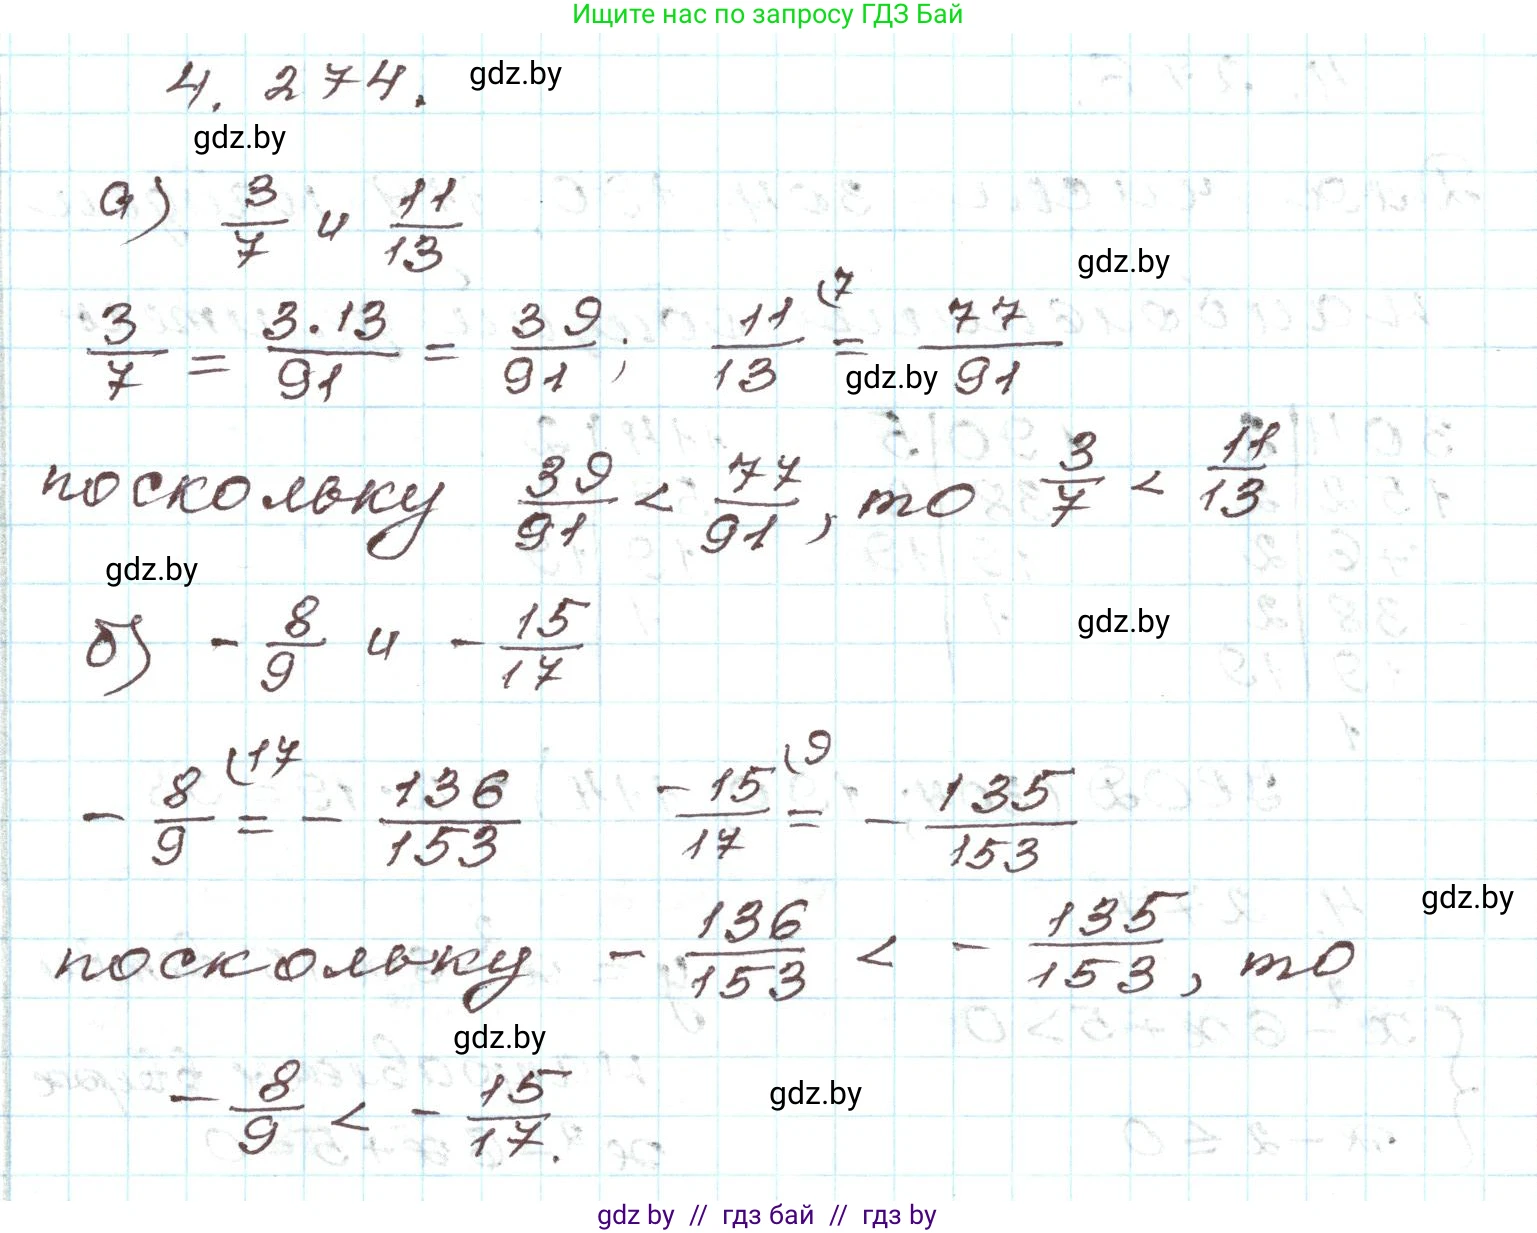 Ищите нас по запросу ГДЗ Бай
4. 274. gdz.by
gdz.by
а) 3/7 и 11/13
gdz.by
3/7 = 3·13/91 = 39/91; 11/13 (7 = 77/91
gdz.by
поскольку 39/91 < 77/91, то 3/7 < 11/13
gdz.by
gdz.by
б) - 8/9 и - 15/17
- 8/9 (17 = - 136/153 - 15/17 (9 = - 135/153
gdz.by
поскольку - 136/153 < - 135/153, то
gdz.by
gdz.by
- 8/9 < - 15/17.
gdz by // гдз бай // гдз by